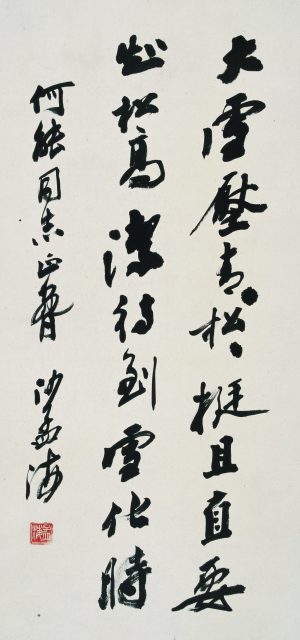 大雪壓青〻松〻挺且直要
知松高潔待到雪化時
何能同志正
沙孟海